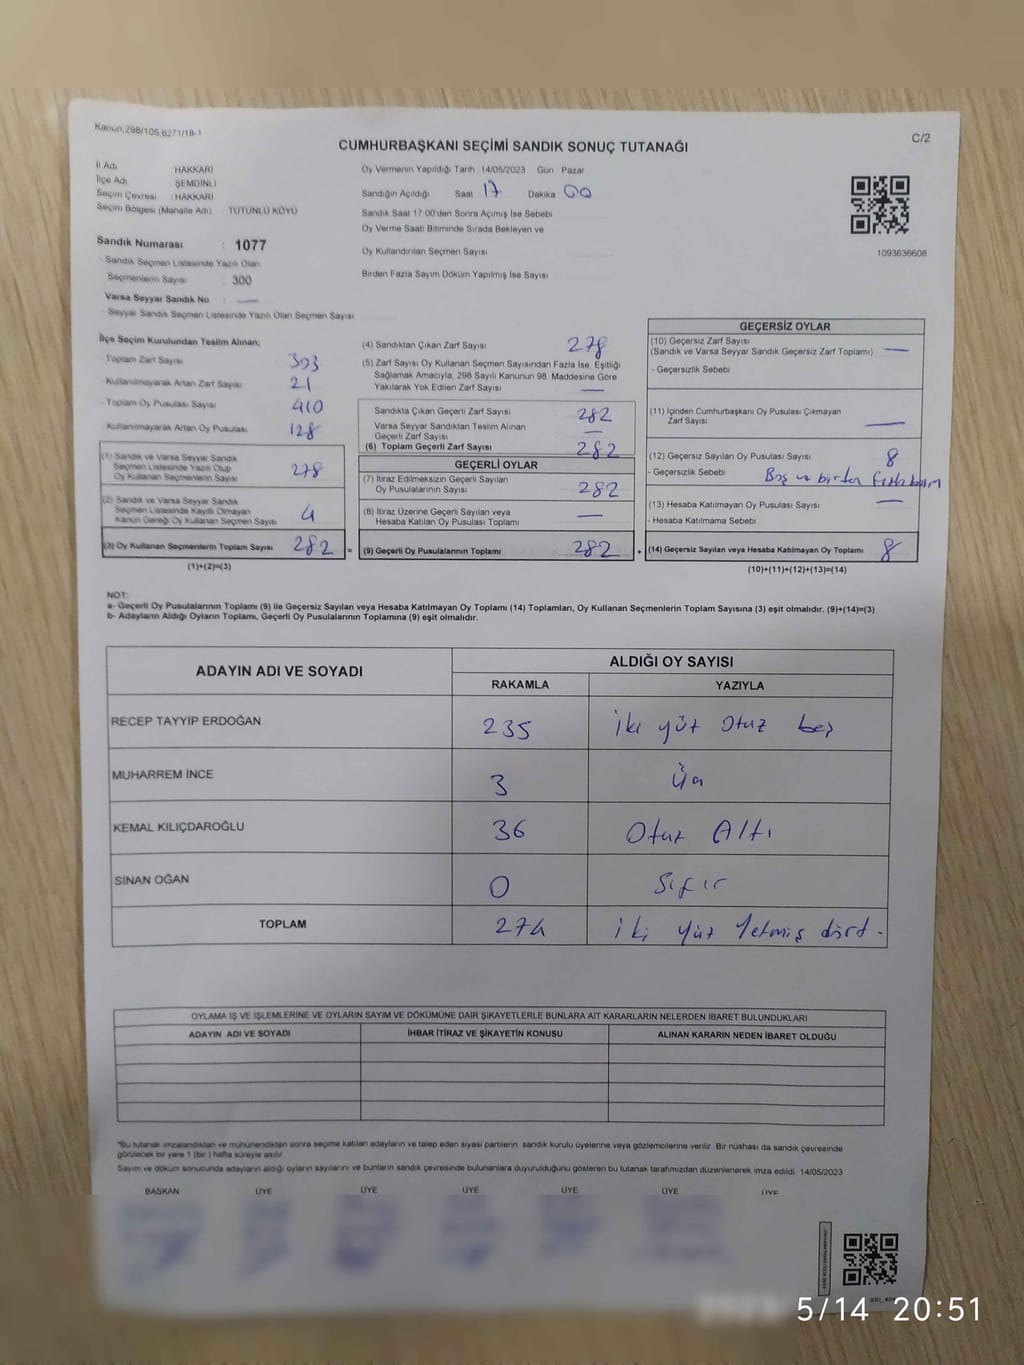 Kanun,298/105,6271/18-1
C/2
CUMHURBAŞKANI SEÇİMİ SANDIK SONUÇ TUTANAĞI
İl Adı HAKKARİ
İlçe Adı ŞEMDİNLİ
Seçim Çevresi : HAKKARİ
Seçim Bölgesi (Mahalle Adı) TÜTÜNLÜ KÖYÜ
Oy Vermenin Yapıldığı Tarih 14/05/2023 Gün Pazar
Sandığın Açıldığı Saat 17 Dakika 00
Sandık Saat 17:00'den Sonra Açımış İse Sebebi
Oy Verme Saati Bitiminde Sırada Bekleyen ve
Oy Kullandırılan Seçmen Sayısı
Birden Fazla Sayım Döküm Yapılmış İse Sayısı
1093636608
Sandık Numarası : 1077
Sandık Seçmen Listesinde Yazılı Olan
Seçmenlerin Sayısı : 300
Varsa Seyyar Sandık No : —
Seyyar Sandık Seçmen Listesinde Yazılı Olan Seçmen Sayısı
İlçe Seçim Kurulundan Teslim Alınan;
- Toplam Zarf Sayısı 303
- Kullanılmayarak Artan Zarf Sayısı 21
- Toplam Oy Pusulası Sayısı 410
- Kullanılmayarak Artan Oy Pusulası 128
(1) Sandık ve Varsa Seyyar Sandık
Seçmen Listesinde Yazılı Olup
Oy Kullanan Seçmenlerin Sayısı 278
(2) Sandık ve Varsa Seyyar Sandık
Seçmen Listesinde Kayıtlı Olmayan
Kanun Gereği Oy Kullanan Seçmen Sayısı 4
(3) Oy Kullanan Seçmenlerin Toplam Sayısı 282 =
(1)+(2)=(3)
(4) Sandıktan Çıkan Zarf Sayısı 278
(5) Zarf Sayısı Oy Kullanan Seçmen Sayısından Fazla İse, Eşitliği
Sağlamak Amacıyla, 298 Sayılı Kanunun 98. Maddesine Göre
Yakılarak Yok Edilen Zarf Sayısı —
Sandıkta Çıkan Geçerli Zarf Sayısı 282
Varsa Seyyar Sandıktan Teslim Alınan
Geçerli Zarf Sayısı —
(6) Toplam Geçerli Zarf Sayısı 282
GEÇERLİ OYLAR
(7) İtiraz Edilmeksizin Geçerli Sayılan
Oy Pusulalarının Sayısı 282
(8) İtiraz Üzerine Geçerli Sayılan veya
Hesaba Katılan Oy Pusulası Toplamı —
(9) Geçerli Oy Pusulalarının Toplamı 282 +
GEÇERSİZ OYLAR
(10) Geçersiz Zarf Sayısı
(Sandık ve Varsa Seyyar Sandık Geçersiz Zarf Toplamı) —
- Geçersizlik Sebebi
(11) İçinden Cumhurbaşkanı Oy Pusulası Çıkmayan
Zarf Sayısı —
(12) Geçersiz Sayılan Oy Pusulası Sayısı 8
- Geçersizlik Sebebi Boş ve birden
(13) Hesaba Katılmayan Oy Pusulası Sayısı —
- Hesaba Katılmama Sebebi
(14) Geçersiz Sayılan veya Hesaba Katılmayan Oy Toplamı 8
(10)+(11)+(12)+(13)=(14)
NOT:
a- Geçerli Oy Pusulalarının Toplamı (9) ile Geçersiz Sayılan veya Hesaba Katılmayan Oy Toplamı (14) Toplamları, Oy Kullanan Seçmenlerin Toplam Sayısına (3) eşit olmalıdır. (9)+(14)=(3)
b- Adayların Aldığı Oyların Toplamı, Geçerli Oy Pusulalarının Toplamına (9) eşit olmalıdır.
ADAYIN ADI VE SOYADI ALDIĞI OY SAYISI
RAKAMLA YAZIYLA
RECEP TAYYİP ERDOĞAN 235 İki yüz Otuz beş
MUHARREM İNCE 3 Üç
KEMAL KILIÇDAROĞLU 36 Otuz Altı
SİNAN OĞAN 0 Sıfır
TOPLAM 274 iki yüz Yetmiş dört.
OYLAMA İŞ VE İŞLEMLERİNE VE OYLARIN SAYIM VE DÖKÜMÜNE DAİR ŞİKAYETLERLE BUNLARA AİT KARARLARIN NELERDEN İBARET BULUNDUKLARI
ADAYIN ADI VE SOYADI İHBAR İTİRAZ VE ŞİKAYETİN KONUSU ALINAN KARARIN NEDEN İBARET OLDUĞU
*Bu tutanak imzalandıktan ve mühürlendikten sonra seçime katılan adayların ve talep eden siyasi partilerin sandık kurulu üyelerine veya gözlemcilerine verilir. Bir nüshası da sandık çevresinde
görülecek bir yere 1 (bir) hafta süreyle asılır.
Sayım ve döküm sonucunda adayların aldığı oyların sayılarını ve bunların sandık çevresinde bulunanlara duyurulduğunu gösteren bu tutanak tarafımızdan düzenlenerek imza edildi. 14/05/2023
BAŞKAN ÜYE ÜYE ÜYE ÜYE ÜYE ÜYE
5/14 20:51